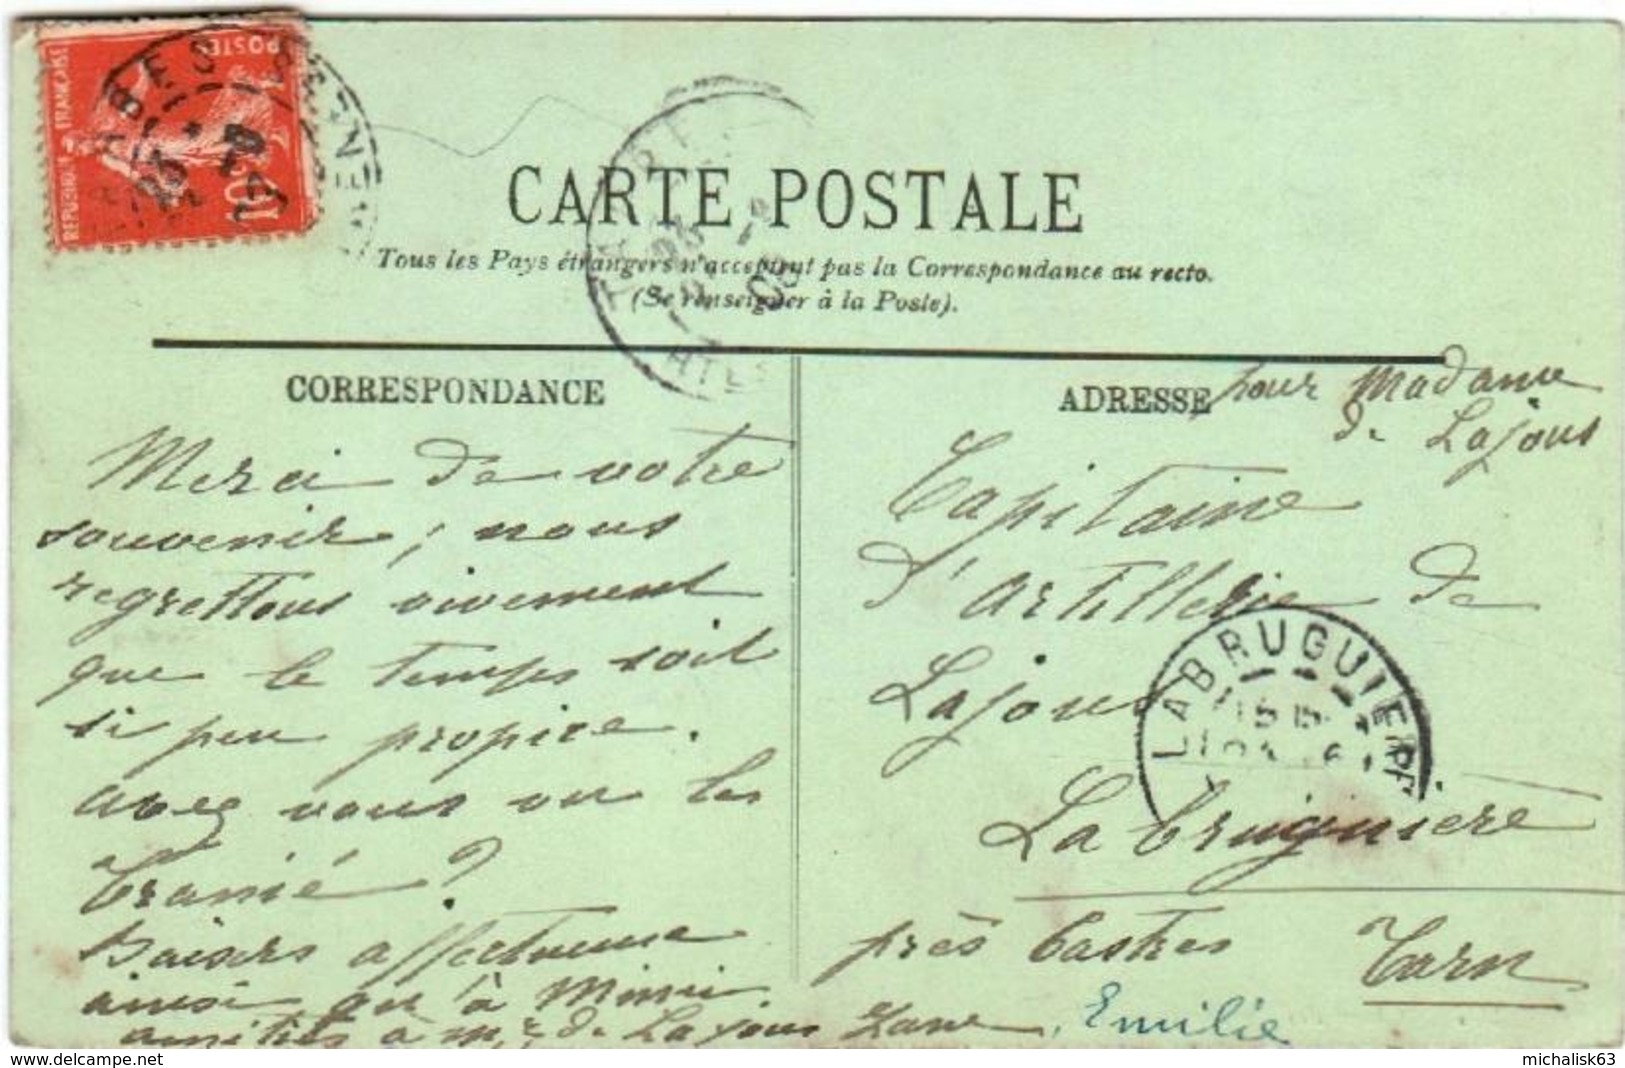 REPUBLIQUE FRANÇAISE
POSTES
10
CARTE POSTALE
Tous les Pays étrangers n'acceptent pas la Correspondance au recto.
(Se renseigner à la Poste).
CORRESPONDANCE
Merci de votre
souvenir, nous
regrettons vivement
que le temps soit
si peu propice.
avez vous vu les
Cranié ?
Baisers affectueux
ainsi qu'à Mimi.
amitiés à Mr de Lajous
Emilie
ADRESSE
pour Madame
de Lajous
Capitaine
d'artillerie de
Lajous
Labruguière
près Castres
Tarn
LABRUGUIERE
delcampe.net
michalisk63